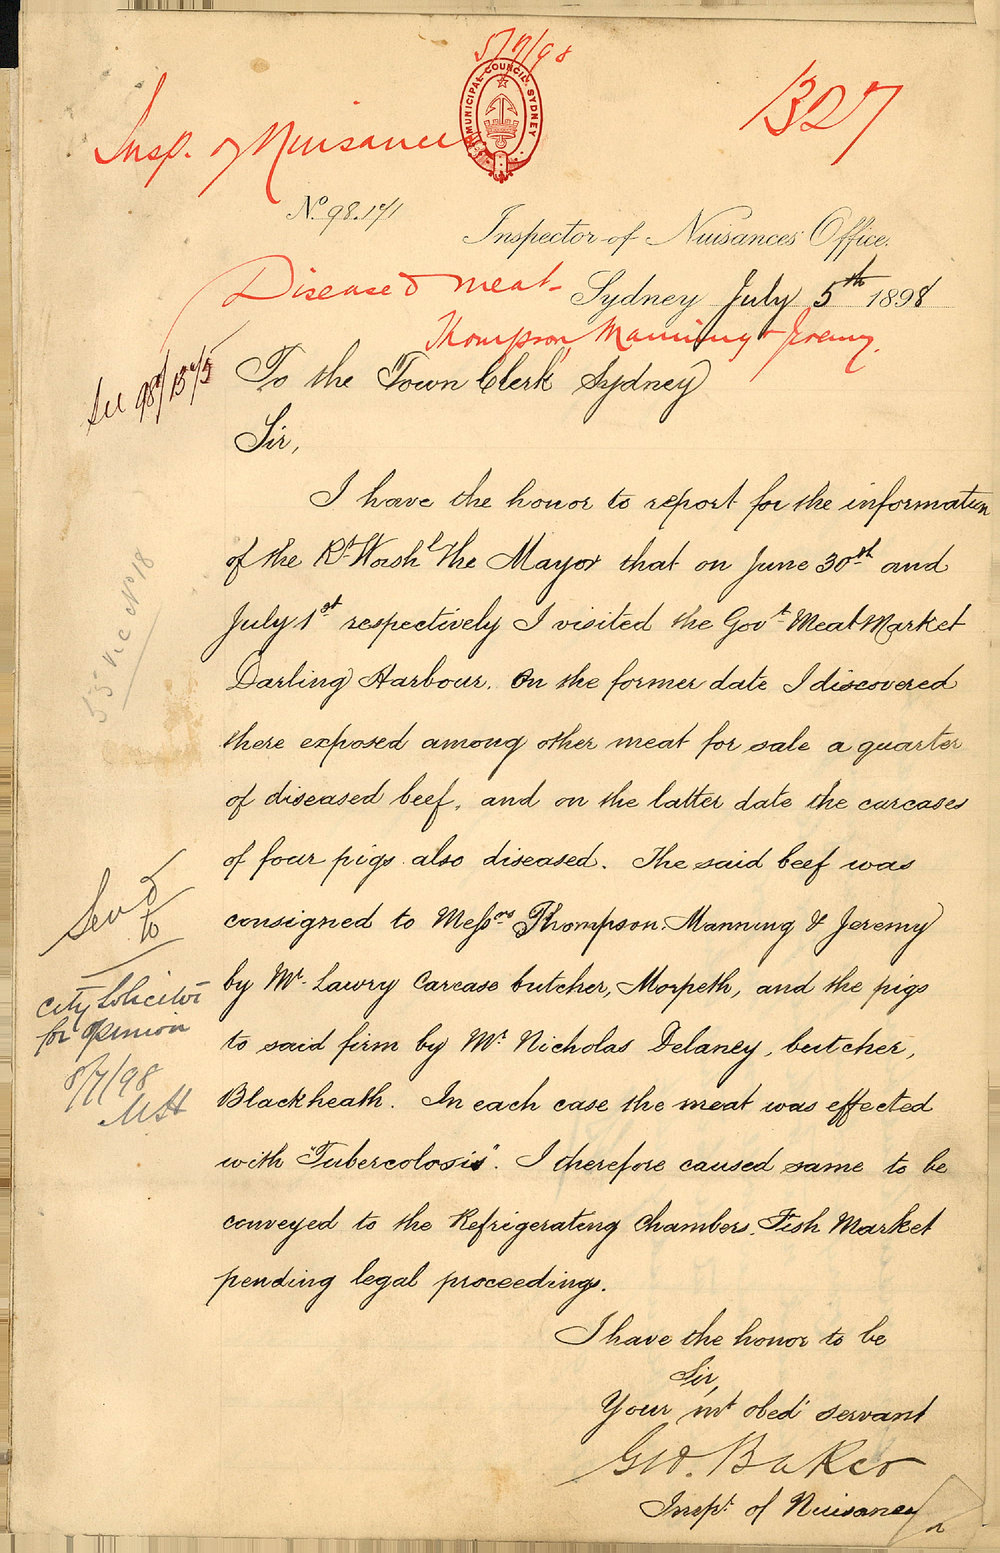 5/7/98
MUNICIPAL COUNCIL. SYDNEY
1327
Insp. of Nuisances
No. 98.171
Inspector of Nuisances Office.
Diseased meat
Sydney July 5th 1898
Thompson Manning & Jeremy.
See 98/1375
To the Town Clerk Sydney
Sir,
I have the honor to report for the information
of the Rt. Worshl. The Mayor that on June 30th and
July 1st respectively I visited the Govt. Meat Market
Darling Harbour. On the former date I discovered
there exposed among other meat for sale a quarter
of diseased beef, and on the latter date the carcases
of four pigs also diseased. The said beef was
consigned to Messrs Thompson. Manning & Jeremy
by Mr. Lawry Carcase butcher, Morpeth, and the pigs
to said firm by Mr. Nicholas Delaney, butcher,
Blackheath. In each case the meat was effected
with "Tubercolosis". I therefore caused same to be
conveyed to the Refrigerating Chambers. Fish Market
pending legal proceedings.
I have the honor to be
Sir,
Your mt obedt servant
Geo. Baker
Inspt. of Nuisances
55 Vic No 18
Send
to
City Solicitor
for opinion
8/7/98